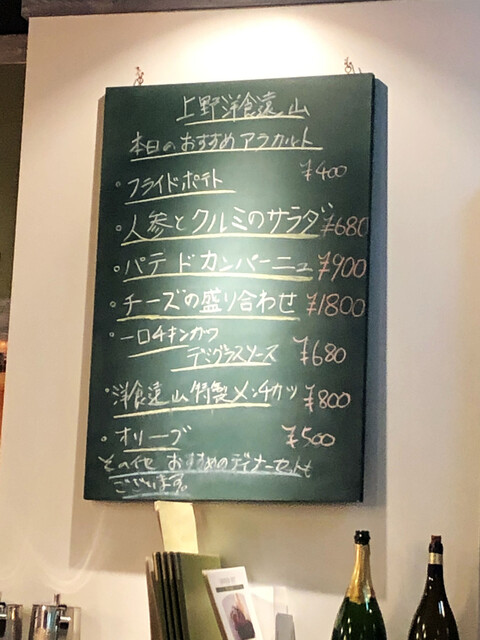 上野洋食遠山
本日のおすすめアラカルト
・フライドポテト ¥400
・人参とクルミのサラダ ¥680
・パテドカンパーニュ ¥900
・チーズの盛り合わせ ¥1800
・一口チキンカツ
デミグラスソース ¥680
・洋食遠山特製メンチカツ ¥800
・オリーブ ¥500
その他 おすすめのディナーセットも
ございます。